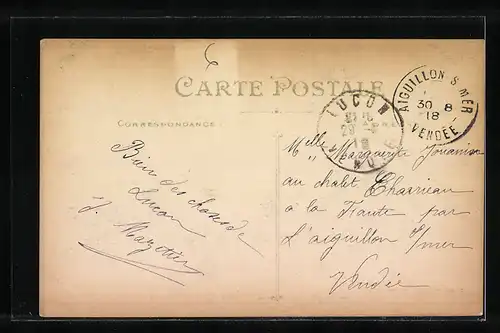 6
CARTE POSTALE
LUÇON
29
18
VENDÉE
AIGUILLON S MER
30 8
18
VENDÉE
CORRESPONDANCE
Bien des choses de
Luçon
J.
Melle Marguerite
au chalet Charrieau
à la Faute par
L'aiguillon s/mer
Vendée